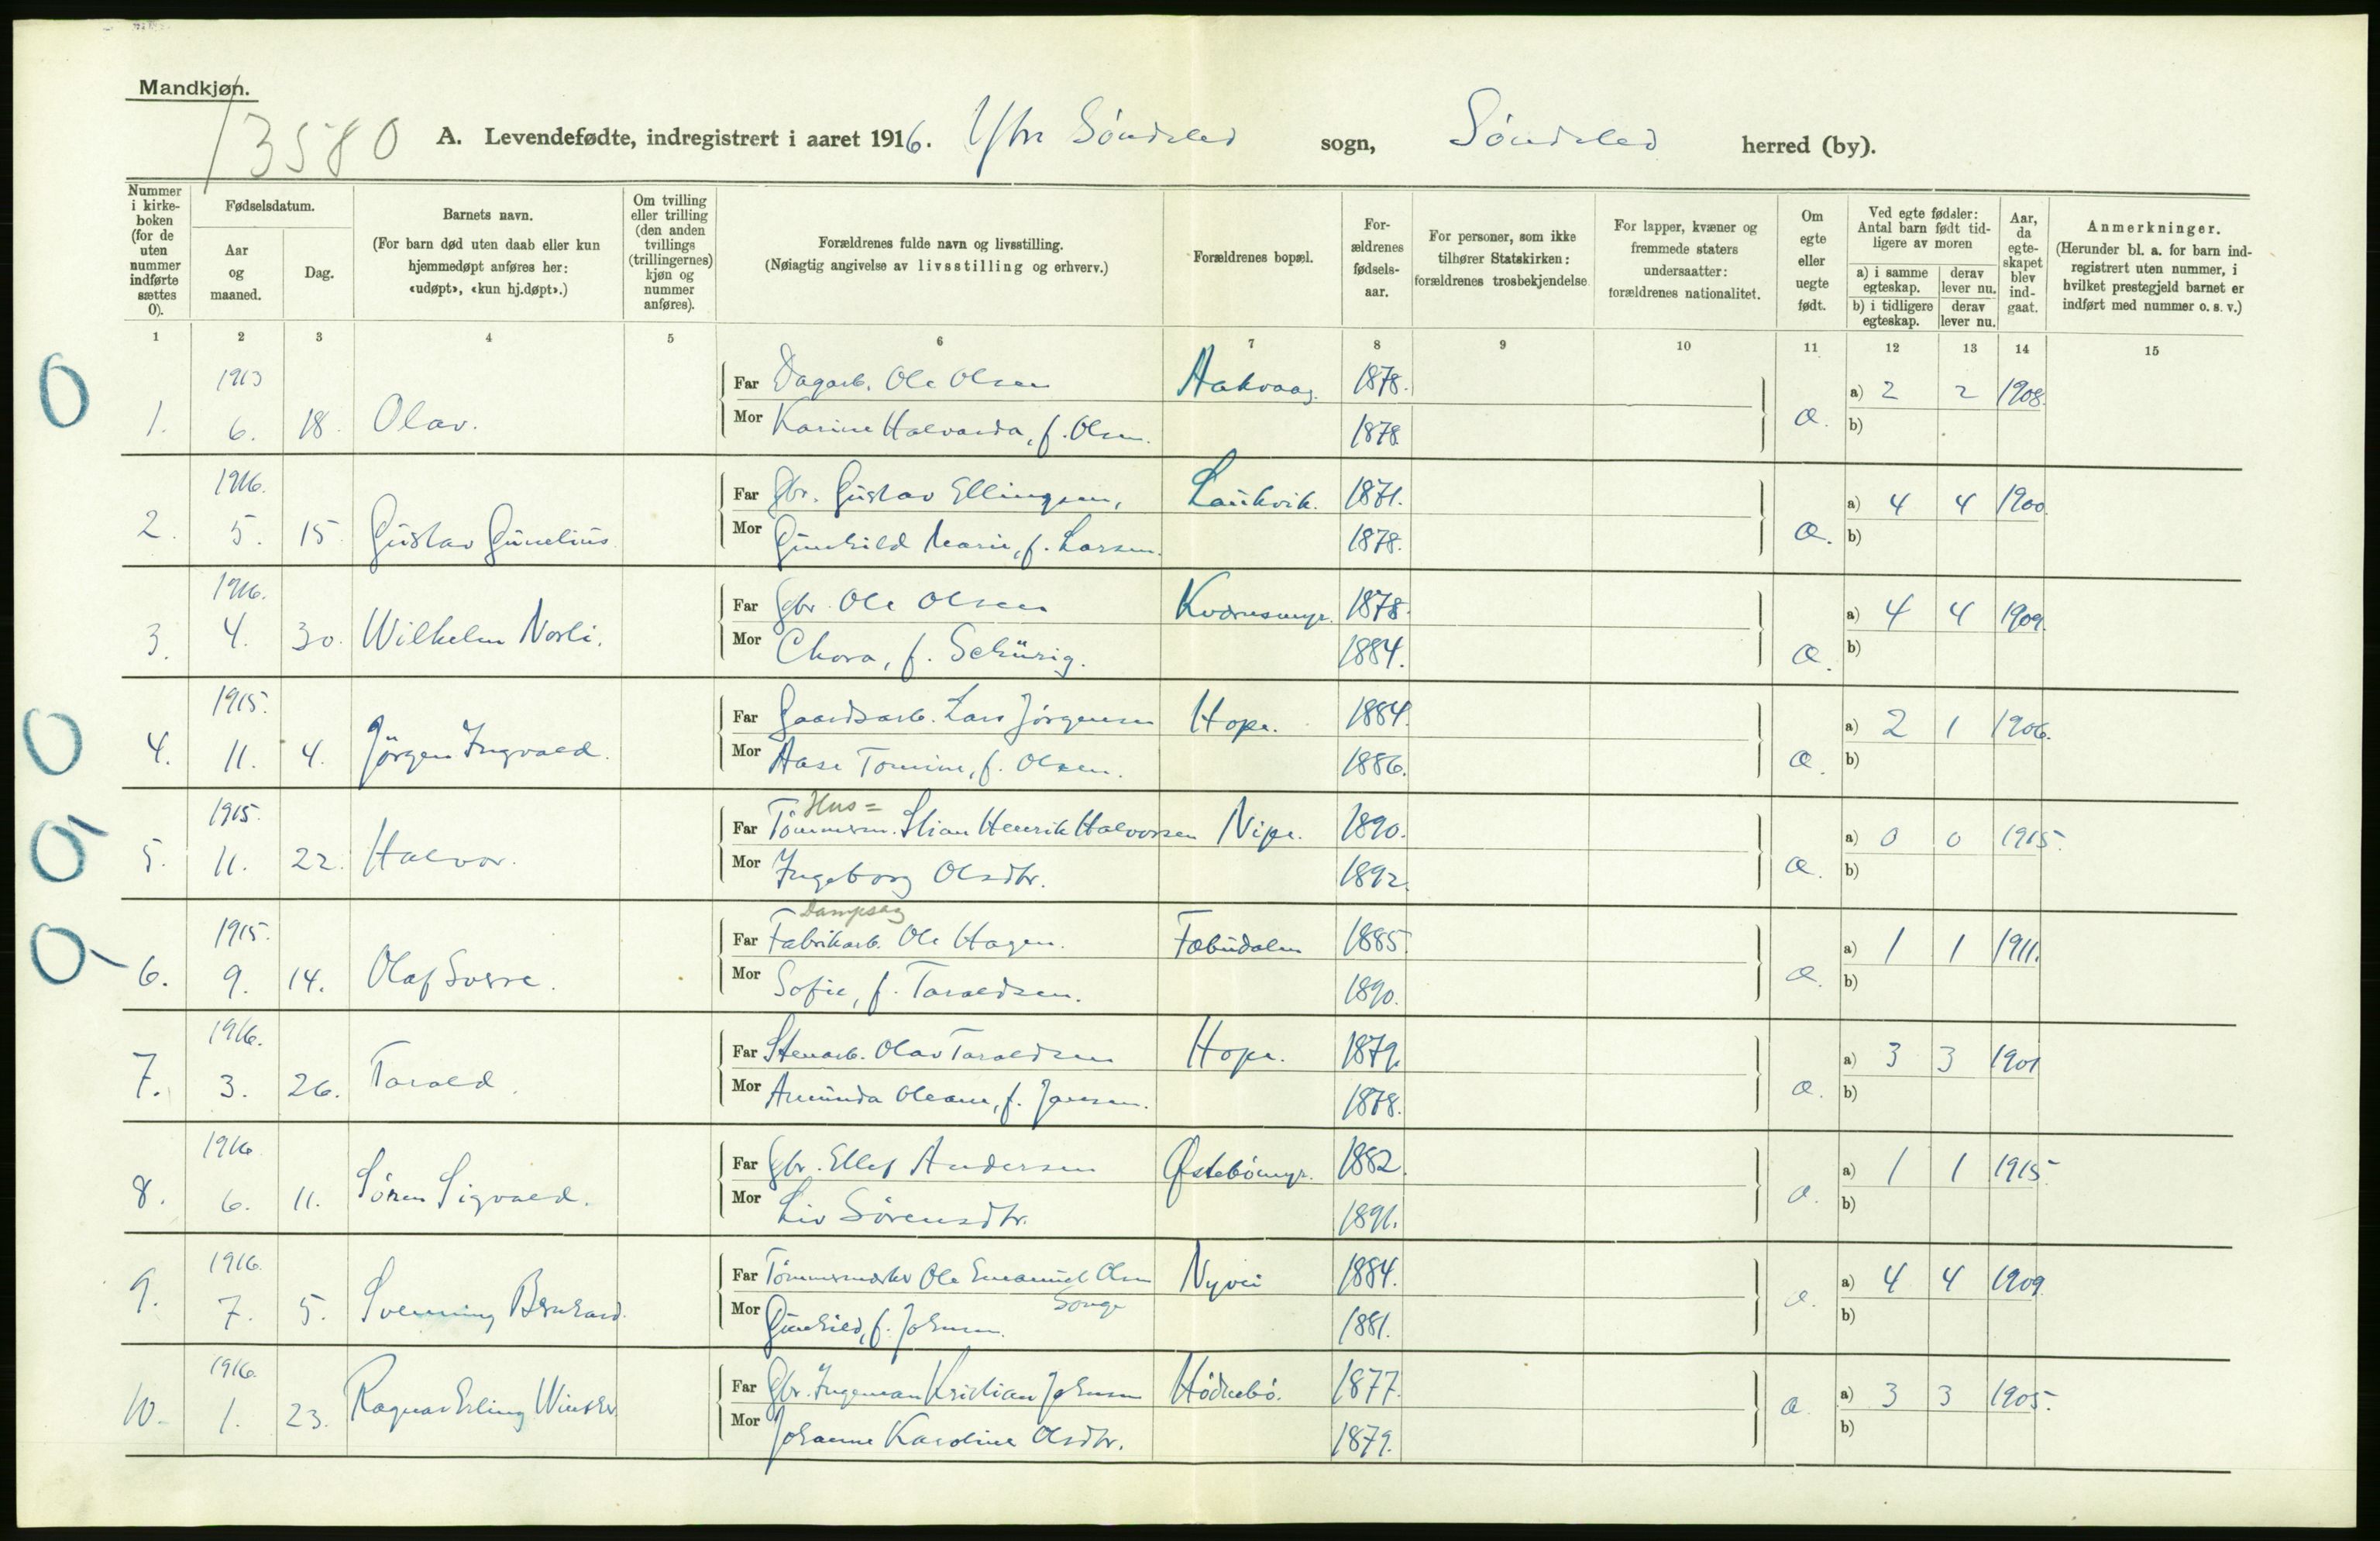 Mandkjøn.
13580 A. Levendefødte, indregistrert i aaret 1916. Ytre Söndeled sogn, Söndeled herred (by).
Nummer i kirkeboken (for de uten nummer indførte sættes 0).
Fødselsdatum.
Aar og maaned.
Dag.
Barnets navn.
(For barn død uten daab eller kun hjemmedøpt anføres her: «udøpt», «kun hj.døpt».)
Om tvilling eller trilling (den anden tvillings (trillingernes) kjøn og nummer anføres).
Forældrenes fulde navn og livsstilling.
(Nøiagtig angivelse av livsstilling og erhverv.)
Forældrenes bopæl.
Forældrenes fødselsaar.
For personer, som ikke tilhører Statskirken: forældrenes trosbekjendelse
For lapper, kvæner og fremmede staters undersaatter: forældrenes nationalitet.
Om egte eller uegte født.
Ved egte fødsler: Antal barn født tidligere av moren
a) i samme egteskap. derav lever nu.
b) i tidligere egteskap. derav lever nu.
Aar, da egteskapet blev indgaat.
Anmerkninger.
(Herunder bl. a. for barn indregistrert uten nummer, i hvilket prestegjeld barnet er indført med nummer o. s. v.)
1 2 3 4 5 6 7 8 9 10 11 12 13 14 15
0
1913 Far Dagarb. Ole Olsen Aakvaag. 1878. a) 2 2 1908.
1. 6. 18. Olav. Mor Karine Halvarda, f. Olsen. 1878. b)
1916. Far Gbr. Gustav Ellingsen, Laukvik. 1871. a) 4 4 1900.
2. 5. 15. Gustav Gunelius Mor Gunhild Marie, f. Larsen. 1878. b)
1916. Far Gbr. Ole Olsen 1878. a) 4 4 1909.
3. 4. 30. Wilhelm Norli. Mor Chora, f. Schürig. 1884. b)
0
1915. Far Gaardsarb. Lars Jörgensen Hope. 1884. a) 2 1 1906.
4. 11. 4. Jörgen Ingvald. Mor Aase Tomine, f. Olsen. 1886. b)
0
Hus=
1915. Far Tömmerm. Stian Henrik Halvorsen Nipe. 1890. a) 0 0 1915.
5. 11. 22. Halvor. Mor Ingeborg Olsdtr. 1892. b)
0
Dampsag
1915. Far Fabrikarb. Ole Hagen. 1885. a) 1 1 1911.
6. 9. 14. Olaf Sverre. Mor Sofie, f. Taraldsen. 1890. b)
1916. Far Stenarb. Olav Taraldsen Hope. 1879. a) 3 3 1901
7. 3. 26. Tarald. Mor Amunda Oleane, f. Jansen. 1878. b)
1916 Far Gbr. Ellef Andersen Østebömyr. 1882. a) 1 1 1915.
8. 6. 11. Sören Sigvald. Mor Liv Sörensdtr. 1891. b)
1916. Far Tömmermerker Ole Emanuel Olsen Nyvei 1884. a) 4 4 1909.
Songe
9. 7. 5. Svenning Bernhard. Mor Gunhild, f. Johnsen. 1881. b)
1916. Far Gbr. Ingeman Kristian Johnsen Hödnebö. 1877. a) 3 3 1905.
10. 1. 23. Ragnar Erling Mor Johanne Karoline Olsdtr. 1879. b)